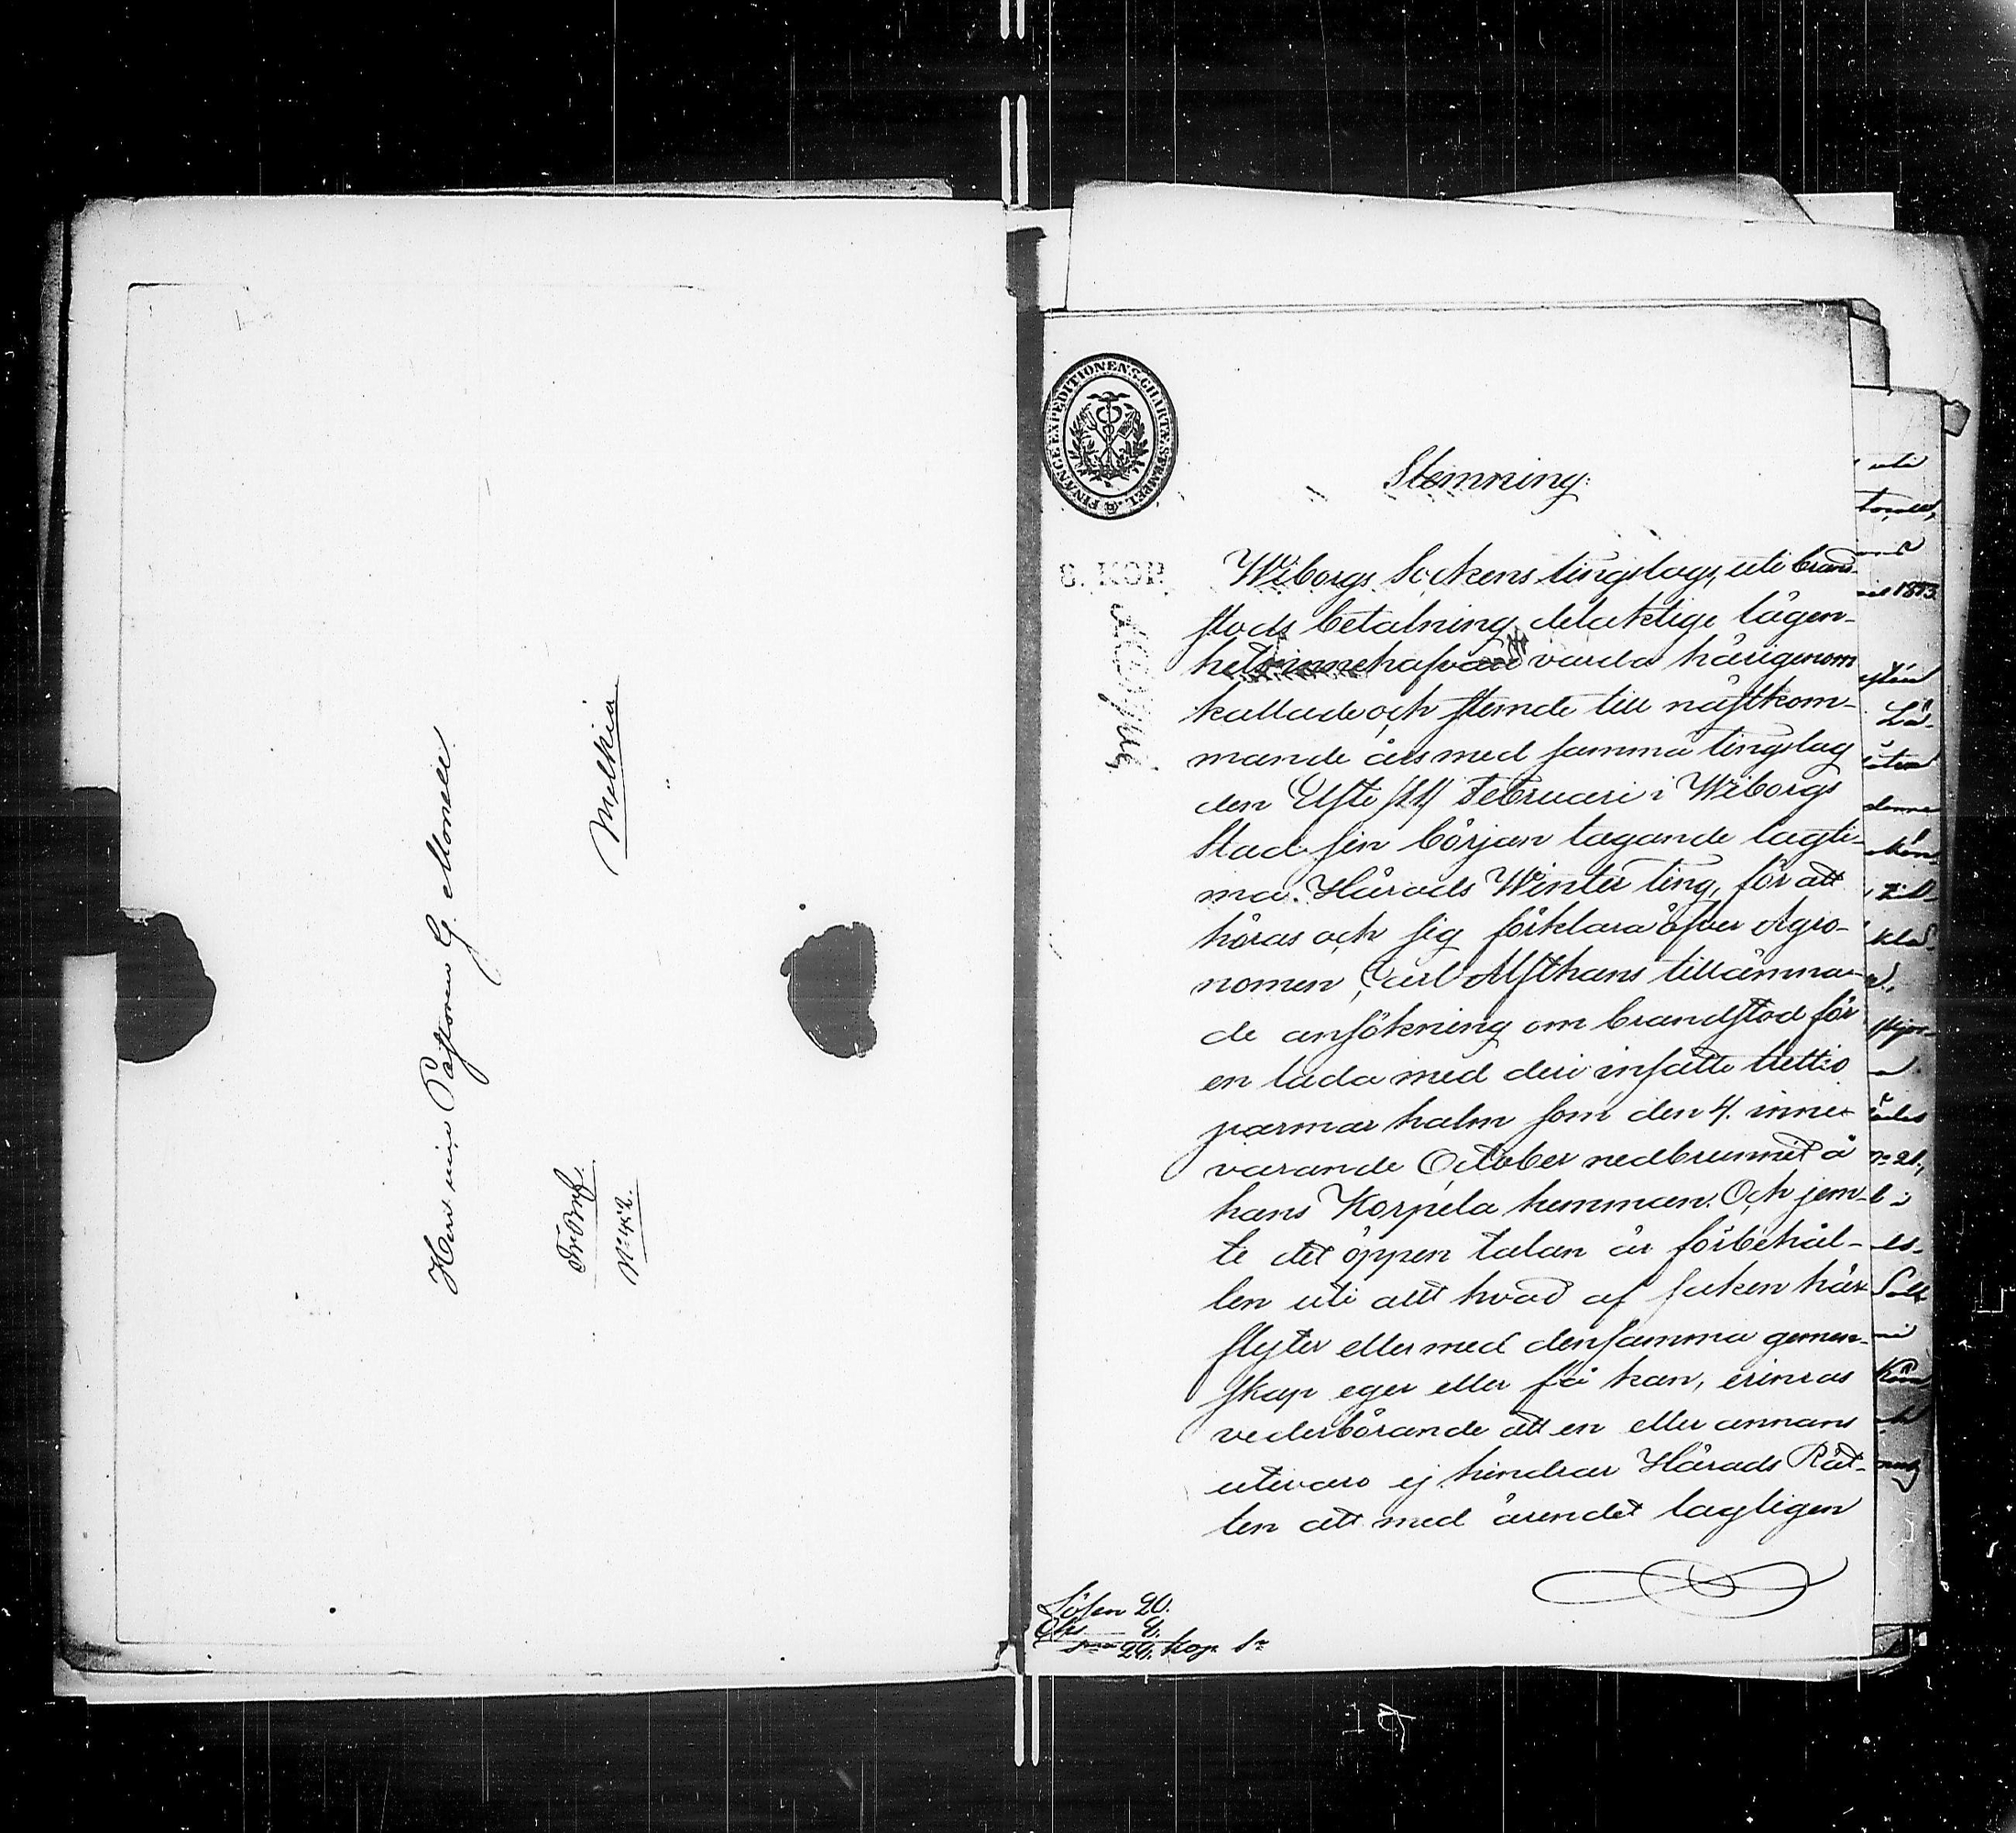 Herr vice Pastoren G. Monell
Fribref.
No 452.
Mölkiä
FINANCE EXPEDITIONENS CHARTÆ STEMPEL
8. KOP.
Stemning:
Wiborgs Sockens tingslags, uti brand-
stods betalning delaktige lägen-
hets innehafvare varda härigenom
kallade och stemde till nästkom-
mande års med samma tingslag
den Elfte /11/ Februari i Wiborgs
Stad sin början tagande lagti-
ma Härads Winter ting, för att
höras och sig förklara öfver Agro-
nomen Carl Alfthans tillämna-
de ansökning om brandstod för
en lada med deri insatte trettio
parmar halm som den 4. inne-
varande October nedbrunnit å
hans Korpela hemman. Och jem-
te det öppen talan är förbehål-
len uti allt hvad af saken här
flyter eller med densamma gemen-
skap eger eller få kan, erinras
vederbörande att en eller annans
utevaro ej hindrar Härads Rät-
ten att med ärendet lagligen
Lösen 20.
Cha 8.
Sma 28. kop. Sr